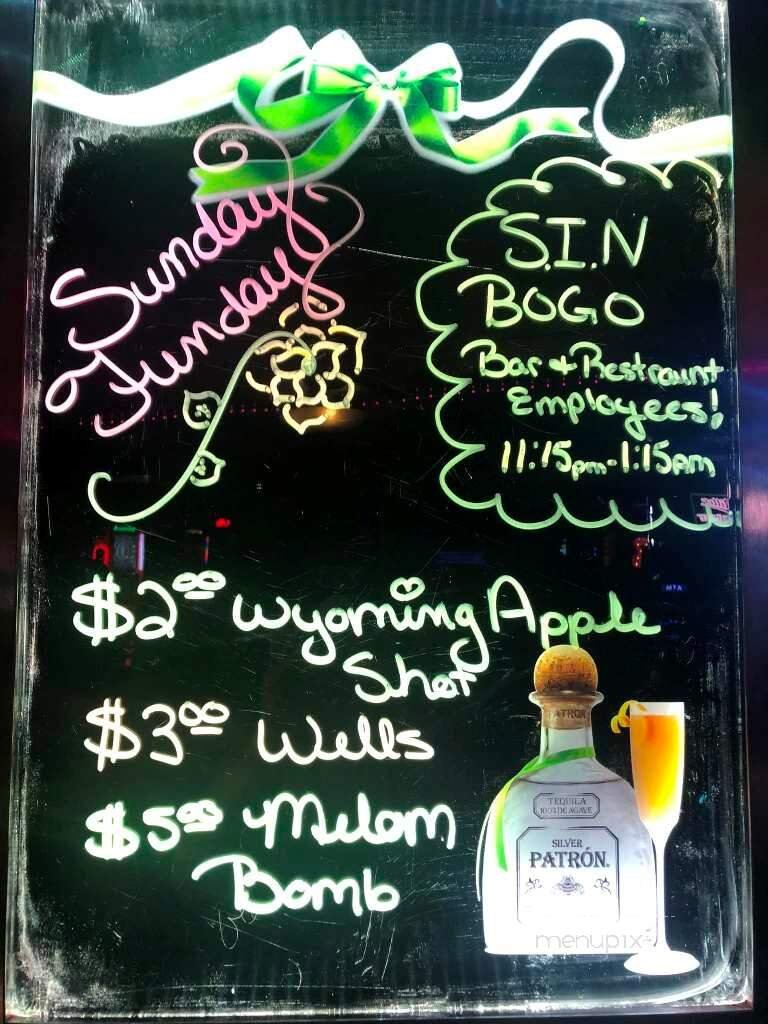 Sunday
Funday
S.I.N
BOGO
Bar + Restraunt
Employees!
11:15pm-1:15am
$2.00 Wyoming Apple
Shot
$3.00 Wells
$5.00 Melom
Bomb
PATRÓN
TEQUILA
100% DE AGAVE
SILVER
PATRÓN.
menupix